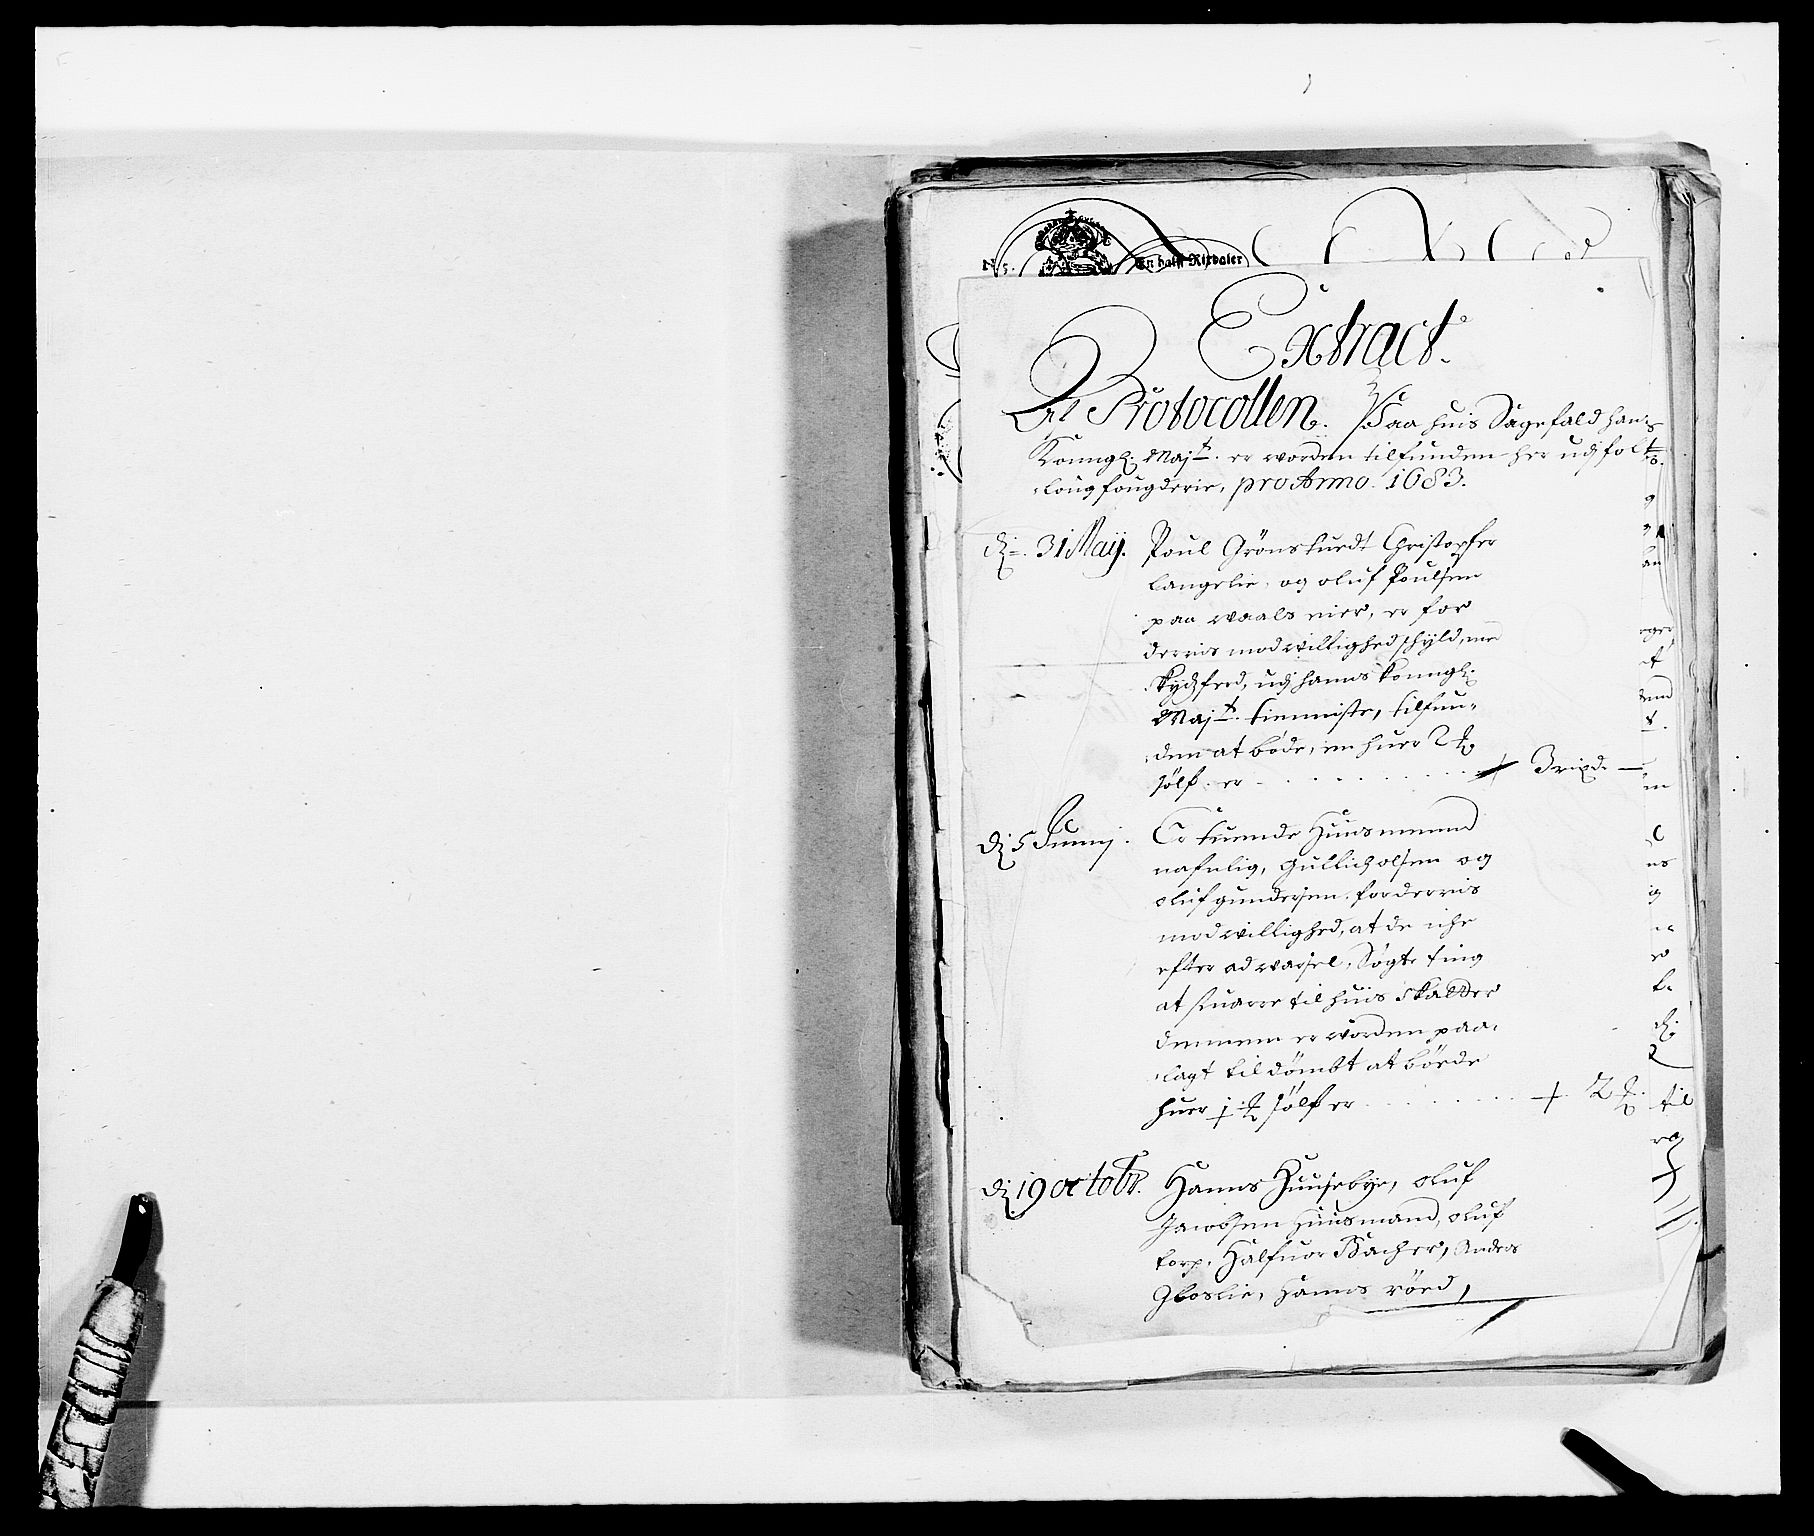 No 5.
En halff Rixdaler
Extract
Af Protocollen. Paa huis Sagefald hans
Konngl: Mayt: er worden tilfunden her udj fol
loug fougderie, pro Anno. 1683.
d: 31 Maij. Poul Grönstuedt Christopfer
Langelie, og oluf Poulsen
paa waals eier, er for
derris modwillighed schyld, med
skydsferd, udj hanns konngl:
Mayt: tienniste, tilfun-
den at böde, en huer 2 lod
sölf. er 3 rixd.
d: 5 Junij. Er tuende Huusmennd
nafnlig, Gullich olsen og
oluf gundersen. for derris
modwillighed, at de iche
efter adwarsel, Sögte ting
at suarre til huis skatter
dennem er worden paa-
lagt til dömbt at böede
huer 1 lod sölf er 2
d: 19 octobr. Hanns Huusebye, oluf
Jacobsen Huusmand, oluf
torp. Halfuor Bacher, Anders
Gloslie, Hanns röed,